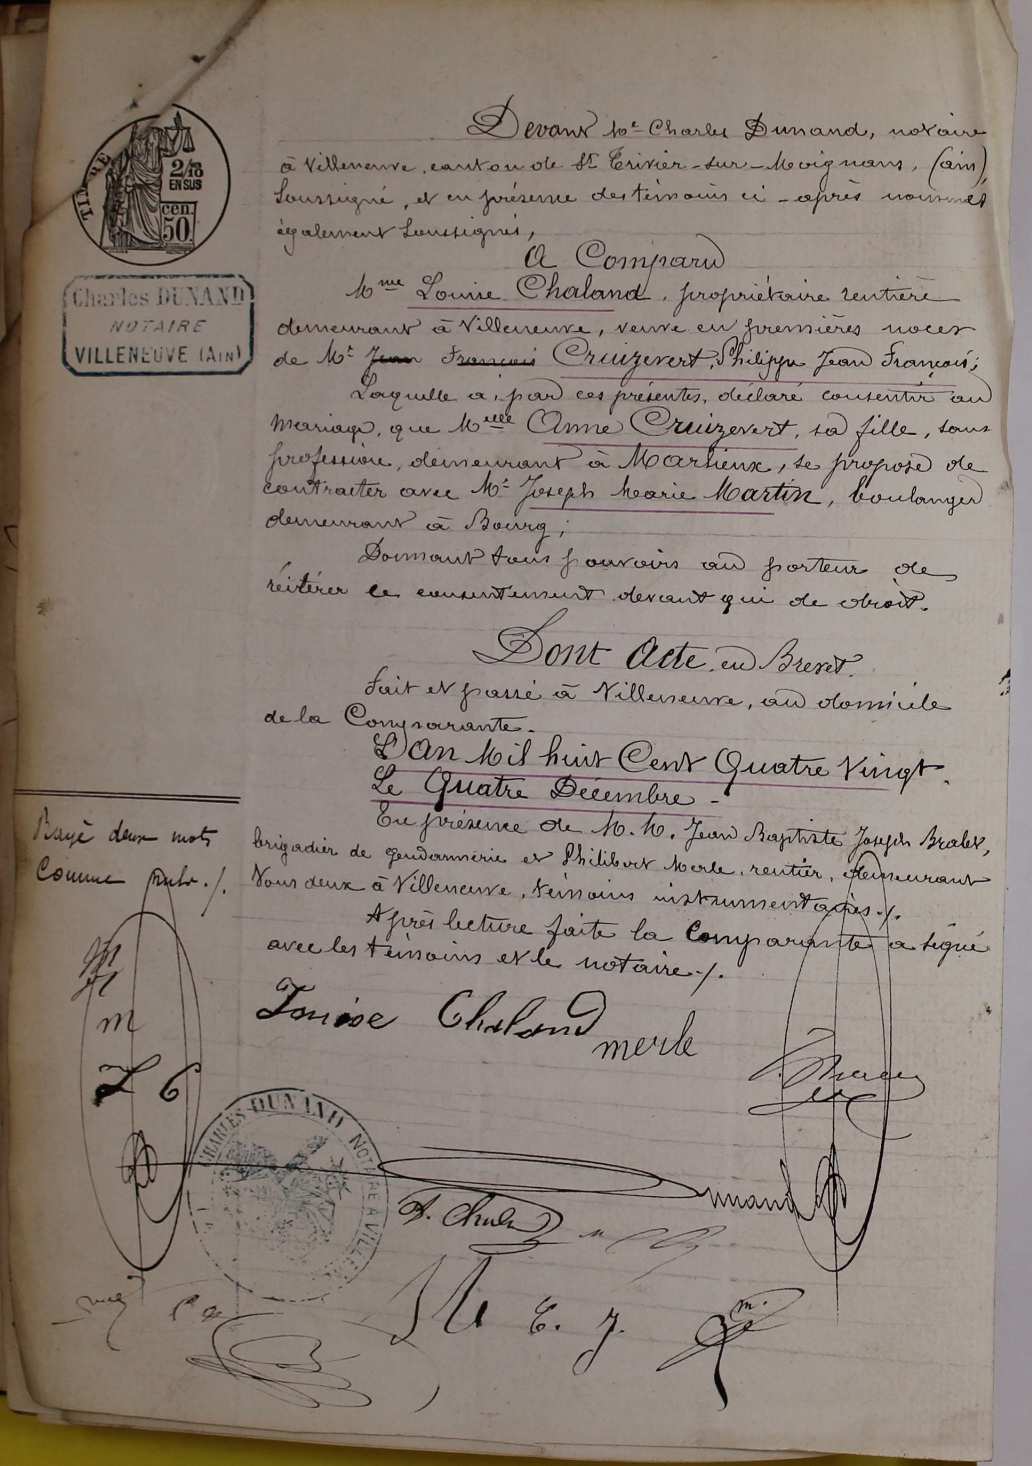 TIMBRE
2/10
EN SUS
50
cen.
Charles DUNAND
NOTAIRE
VILLENEUVE (AIN)
Devant Me Charles Dunand, notaire
à Villeneuve, canton de St Trivier-sur-Moignans, (ain),
soussigné, et en présence des témoins ci-après nommés
également soussignés,
A Comparu
Mme Louise Chaland, propriétaire rentière
demeurant à Villeneuve, veuve en premières noces
de Mr Jean François Cruizevert, Philippe Jean François;
Laquelle a, par ces présentes, déclaré consentir au
mariage, que Melle Anne Cruizevert, sa fille, sans
profession, demeurant à Marlieux, se propose de
contracter avec Mr Joseph Marie Martin, boulanger
demeurant à Bourg;
Donnant tous pouvoirs au porteur de
réitérer ce consentement devant qui de droit.
Dont Acte, en Brevet.
Fait et passé à Villeneuve, au domicile
de la Comparante.
L'An Mil huit Cent Quatre Vingt.
Le Quatre Décembre -
En présence de M.M. Jean Baptiste Joseph
brigadier de gendarmerie et Philibert Merle, rentier, demeurant
tous deux à Villeneuve, témoins instrumentaires./.
Après lecture faite la Comparante a signé
avec les témoins et le notaire./.
Rayé deux mots
Comme nuls./.
m
L C
Louise Chaland
merle
Dunand
CHARLES DUNAND NOTAIRE A VILLENEUVE